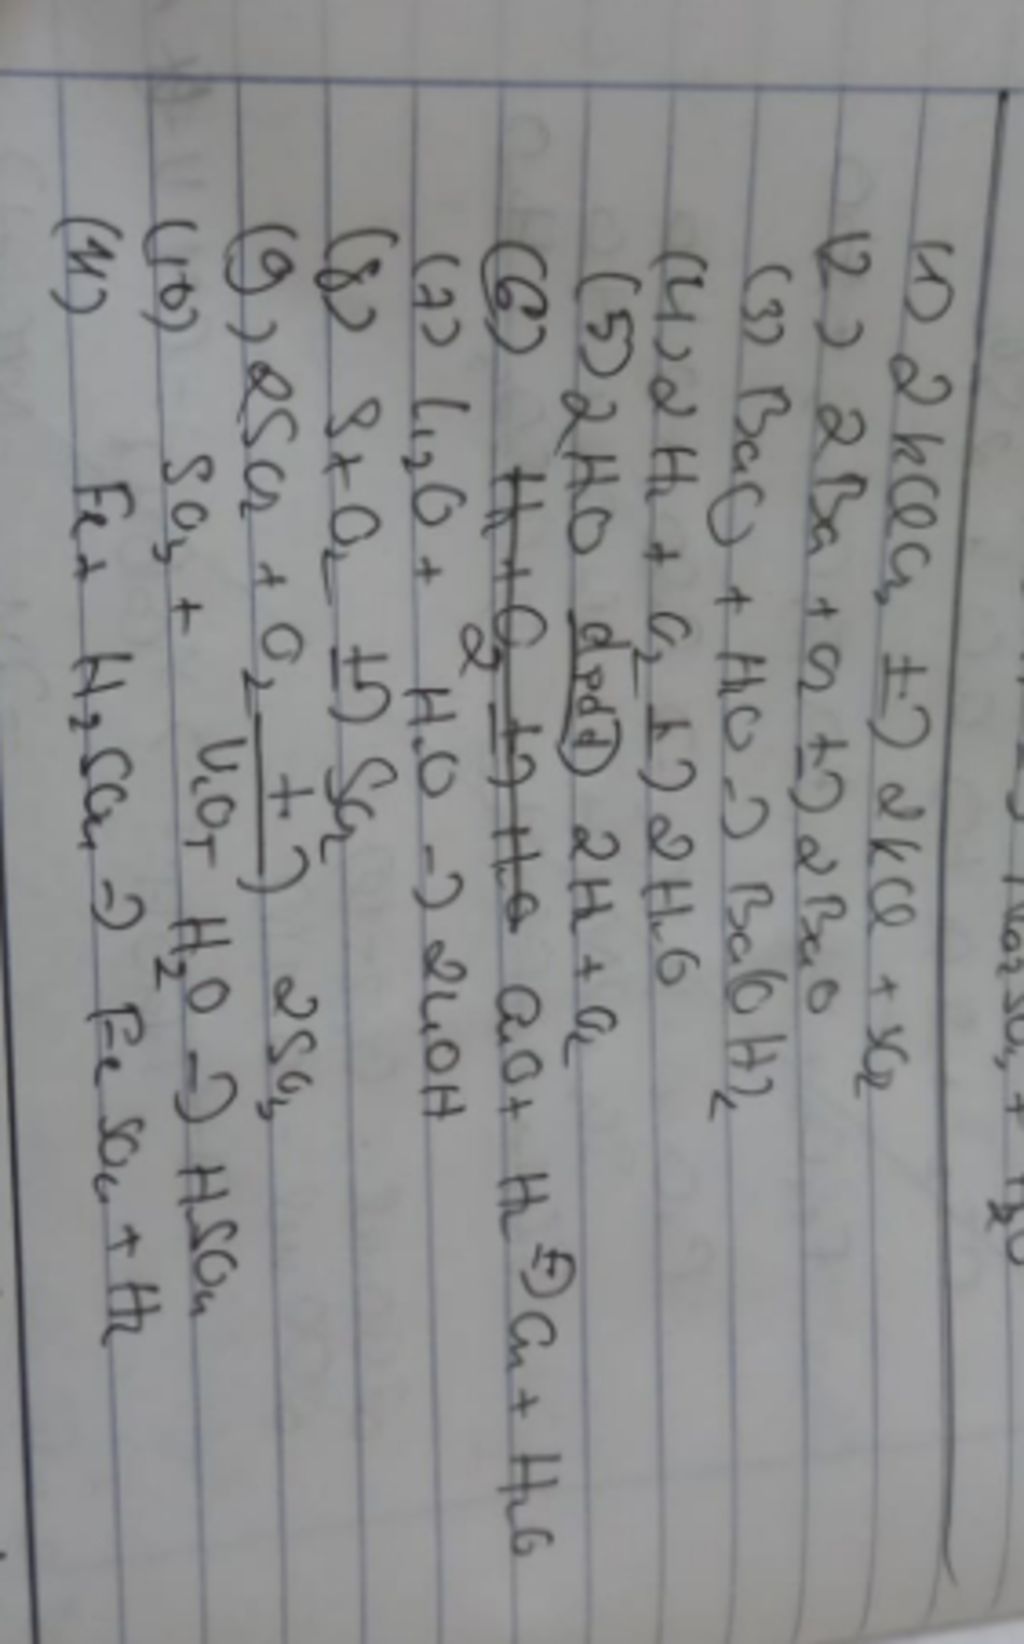 (1) 2KClO3 t-> 2KCl + 3O2
(2) 2Ba + O2 t-> 2BaO
(3) BaO + H2O -> Ba(OH)2
(4) 2H2 + O2 t-> 2H2O
(5) 2H2O đpdd 2H2 + O2
(6) CuO + H2 t-> Cu + H2O
(7) Li2O + H2O -> 2LiOH
(8) S + O2 t-> SO2
(9) 2SO2 + O2 t-> 2SO3
V2O5
(10) SO3 + H2O -> H2SO4
(11) Fe + H2SO4 -> FeSO4 + H2